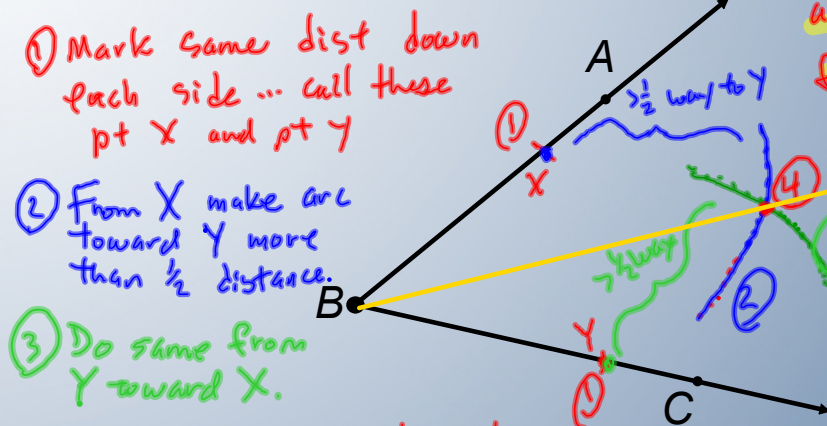 ① Mark same dist down
each side ... call these
pt X and pt Y
② From X make arc
toward Y more
than ½ distance.
③ Do same from
Y toward X.
A
>½ way to Y
①
X
④
B
>½ way
②
Y
①
C